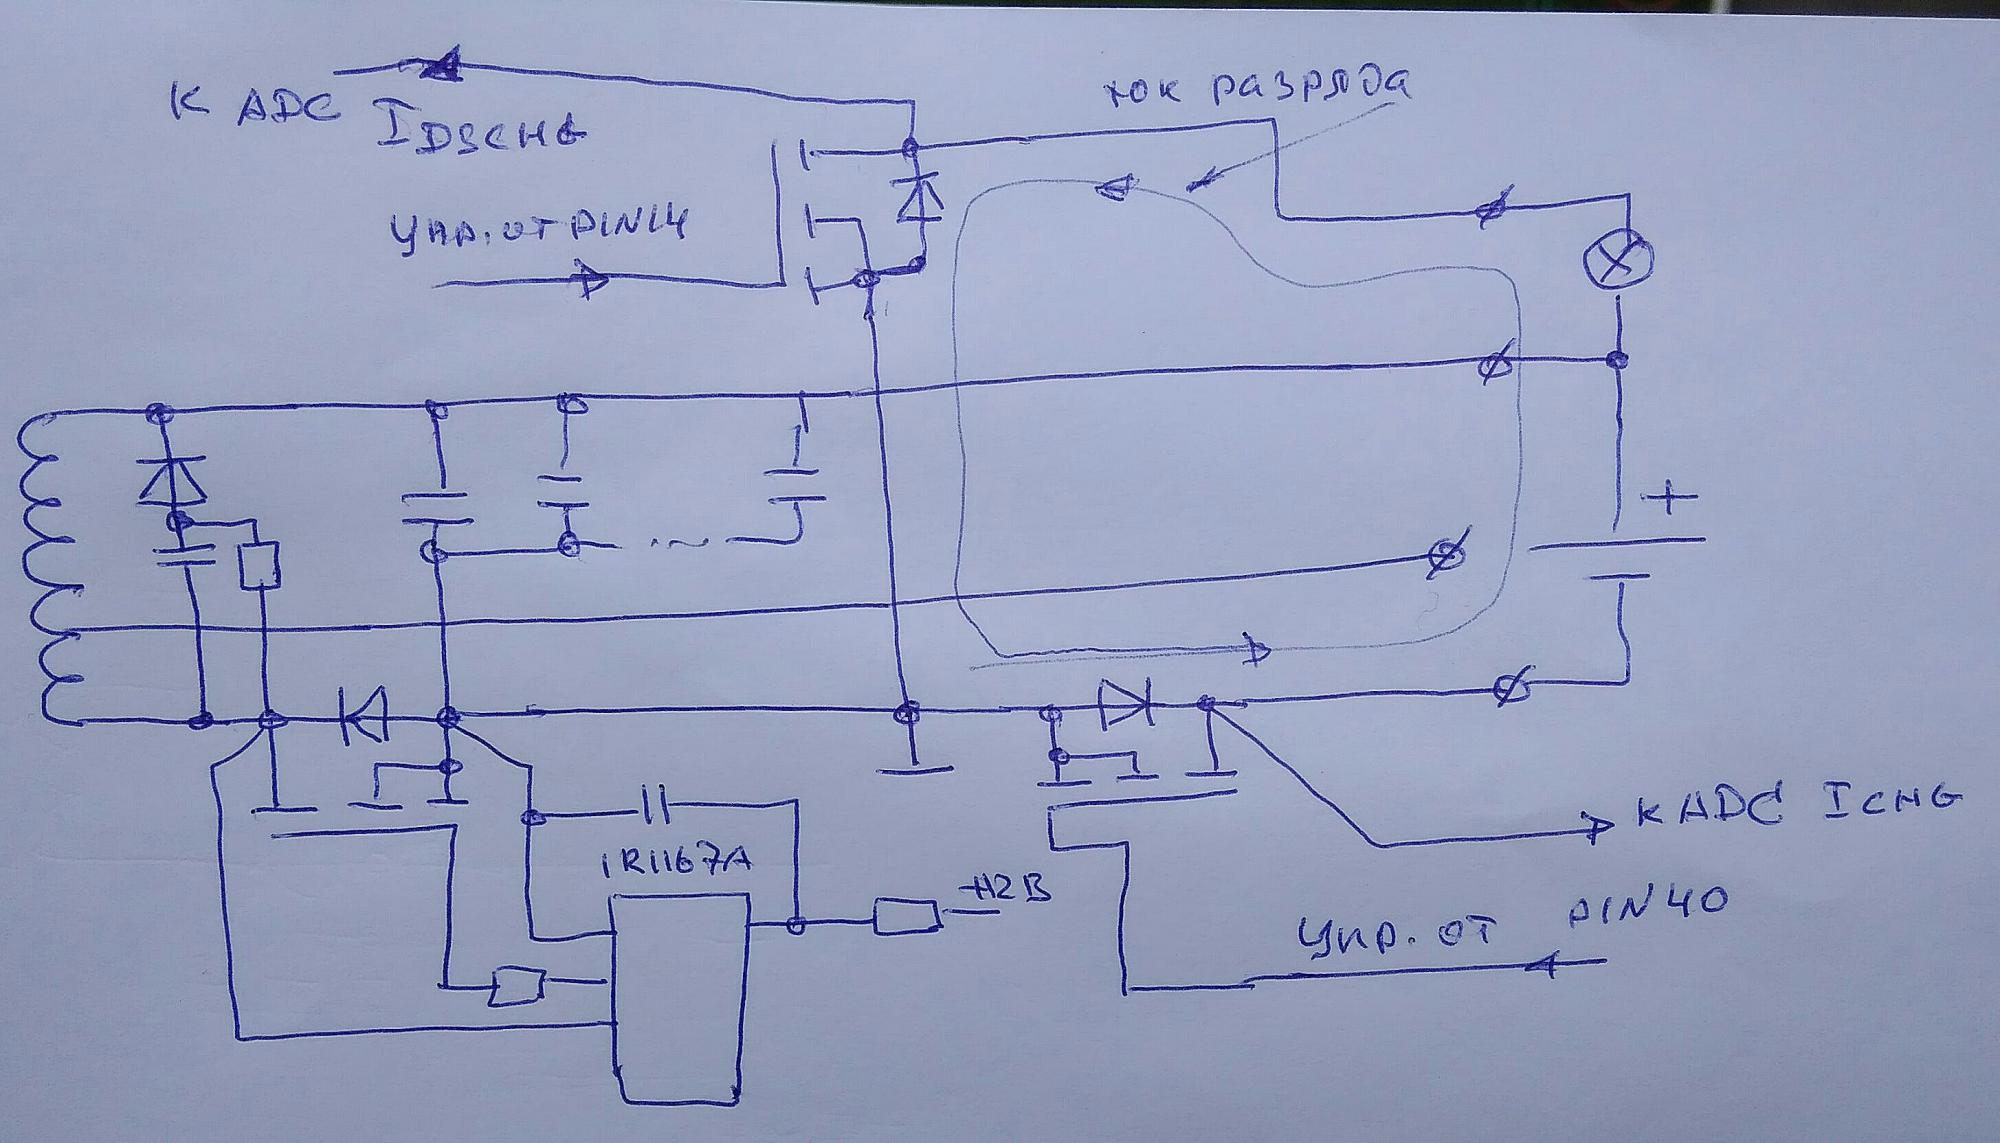 К ADC IDSCHG
ток разряда
Упр. от PIN14
+
IR1167A
+12В
К ADC ICHG
Упр. от PIN40